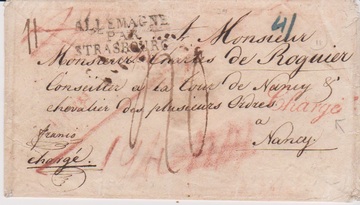 ALLEMAGNE
PAR
STRASBOURG
41
A Monsieur
Monsieur Charles de Roguier
Conseiller à la Cour de Nancy &
chevalier des plusieurs Ordres
Chargé
à
Nancy
franco
chargé.